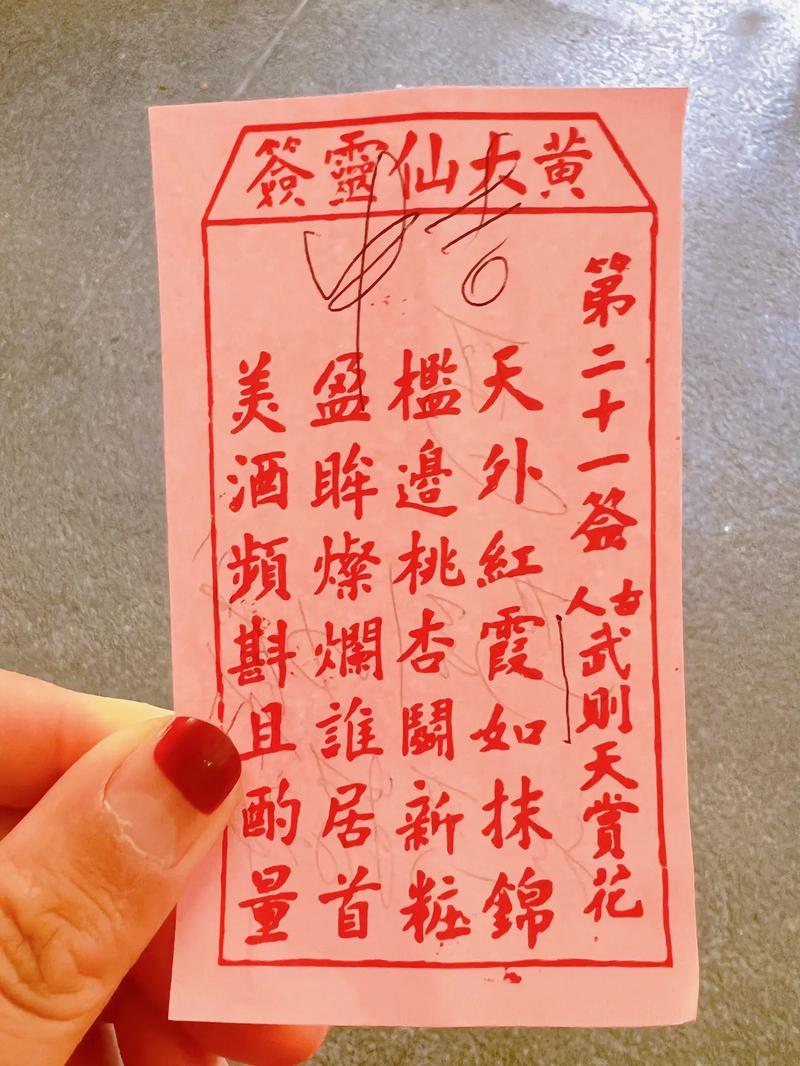 黄大仙靈簽
中吉
第二十一簽
古人
武則天賞花
天外紅霞如抹錦
檻邊桃杏鬭新粧
盈眸燦爛誰居首
美酒頻斟且酌量